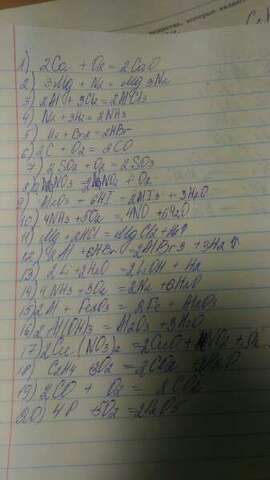 1) 2Ca + O2 = 2CaO
2) 3Mg + N2 = Mg3N2
3) 2Al + 3Cl2 = 2AlCl3
4) N2 + 3H2 = 2NH3
5) H2 + Br2 = 2HBr
6) 2C + O2 = 2CO
7) 2SO2 + O2 = 2SO3
8) 2NaNO3 = 2NaNO2 + O2
9) + 6HI = 2MI3 + 3H2O
10) 4NH3 + 5O2 = 4NO + 6H2O
11) Mg + 2HCl = MgCl2 + H2↑
12) 2Al + 6HBr = 2AlBr3 + 3H2↑
13) 2Li + 2H2O = 2LiOH + H2
14) 4NH3 + 3O2 = 2N2 + 6H2O
15) 2Al + Fe2O3 = 2Fe + Al2O3
16) 2Al(OH)3 = Al2O3 + 3H2O
17) 2Cu(NO3)2 = 2CuO + 4NO2 + O2
18) C2H4 3O2 = 2CO2 + 2H2O
19) 2CO + O2 = 2CO2
20) 4P 5O2 = 2P2O5